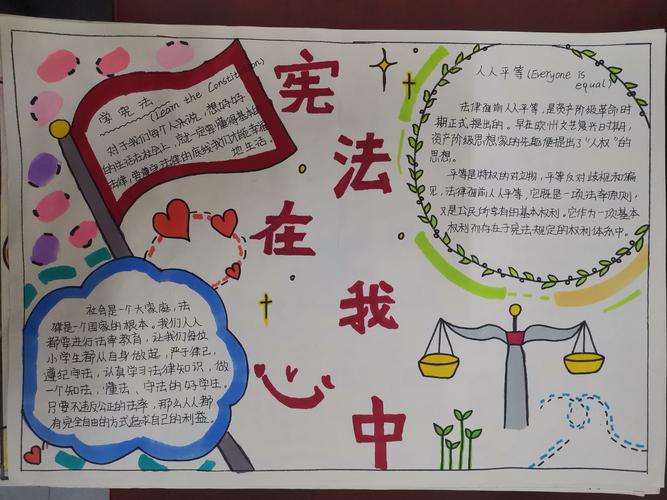 宪法在我心中
学宪法
(Learn the Constitution)
对于我们每个人来说，想好好
的生活在社会上，就一定要懂得基本的
法律，要遵守法律的底线我们才能幸福
地生活。
人人平等(Everyone is
equal)
法律面前人人平等，是资产阶级革命时
期正式提出的。早在欧州文艺复兴时期，
资产阶级思想家的先驱便提出了"人权"的
思想。
平等是特权的对立物，平等反对歧视和偏
见，法律面前人人平等，它既是一项法律原则，
又是公民所享有的基本权利。它作为一项基本
权利而存在于宪法规定的权利体系中。
社会是一个大家庭，法
律是一个国家的根本。我们人人
都要进行法率教育，让我们每位
小学生都从自身做起，严于律己，
遵纪守法，认真学习法律知识，做
一个知法，懂法、守法的好学生。
只要不违反公正的法律，那么人人都
有完全自由的方式追求自己的利益。